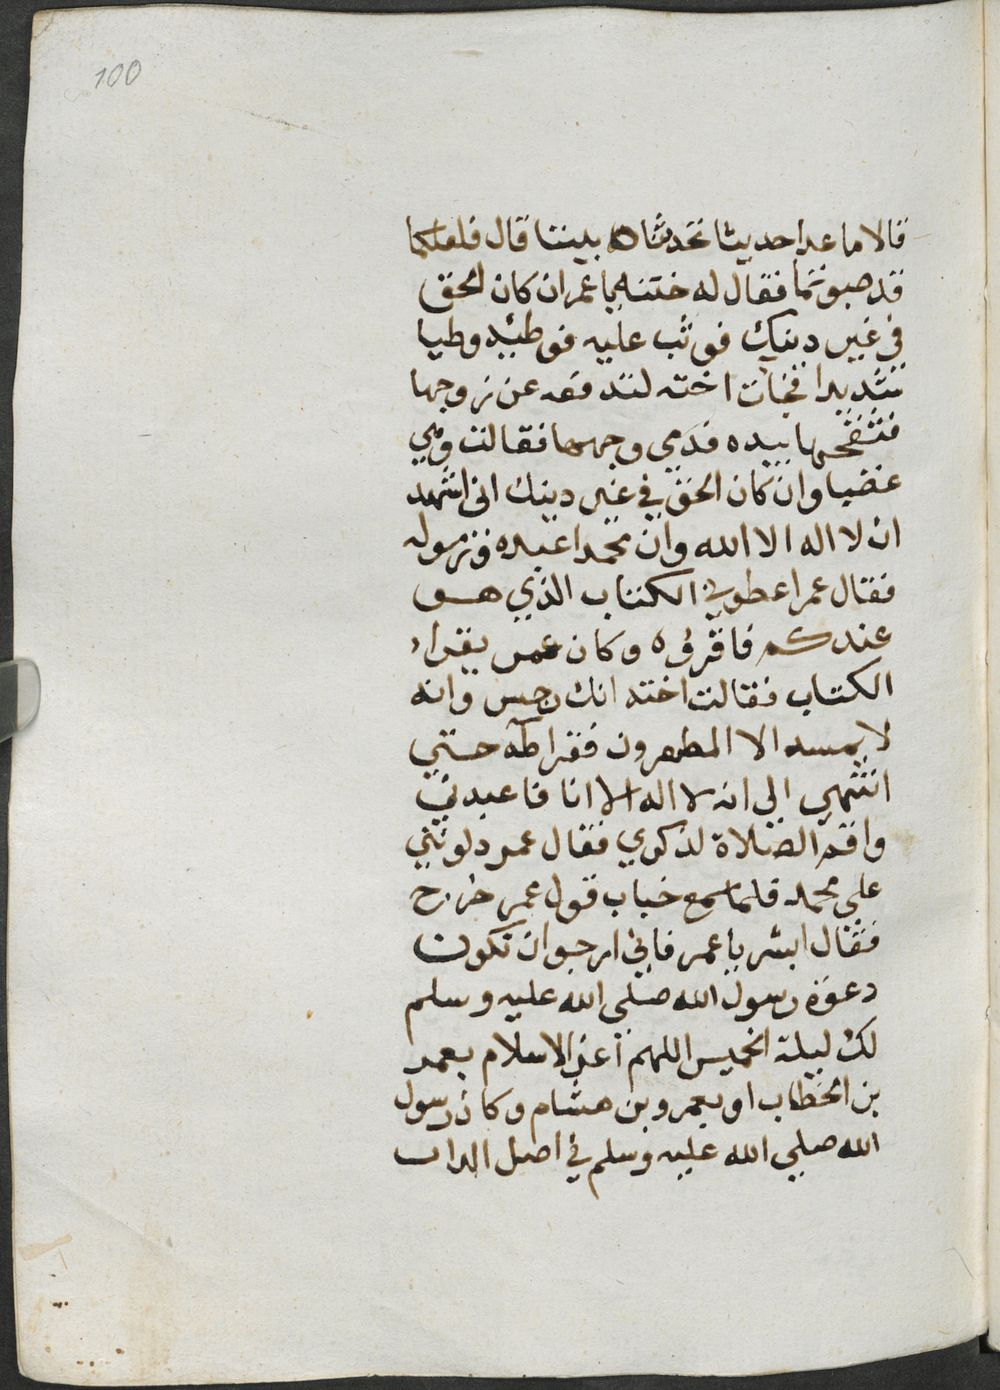 100
قالا ما عدا حديثا تحدثناه بيننا قال فلعلكما
قد صبوتما فقال له ختنه يا عمر ان كان الحق
في غير دينك فوثب عليه فوطئه وطيا
شديدا فجآت اخته لتدفعه عن زوجها
فنفحها بيده فدمي وجهها فقالت وهي
غضبا وان كان الحق في غير دينك اني اشهد
ان لا اله الا الله وان محمدا عبده ورسوله
فقال عمر اعطوني الكتاب الذي هو
عندكم فاقرؤه وكان عمر يقراء
الكتاب فقالت اخته انك رجس وانه
لا يمسه الا المطهرون فقرا طه حتي
انتهي الي انه لا اله الا انا فاعبدني
واقم الصلاة لذكري فقال عمر دلوني
على محمد فلما سمع خباب قول عمر خرج
فقال ابشر يا عمر فاني ارجو ان تكون
دعوة رسول الله صلى الله عليه وسلم
لك ليلة الخميس اللهم اعز الاسلام بعمر
بن الخطاب او بعمرو بن هشام وكان رسول
الله صلي الله عليه وسلم في اصل الدار